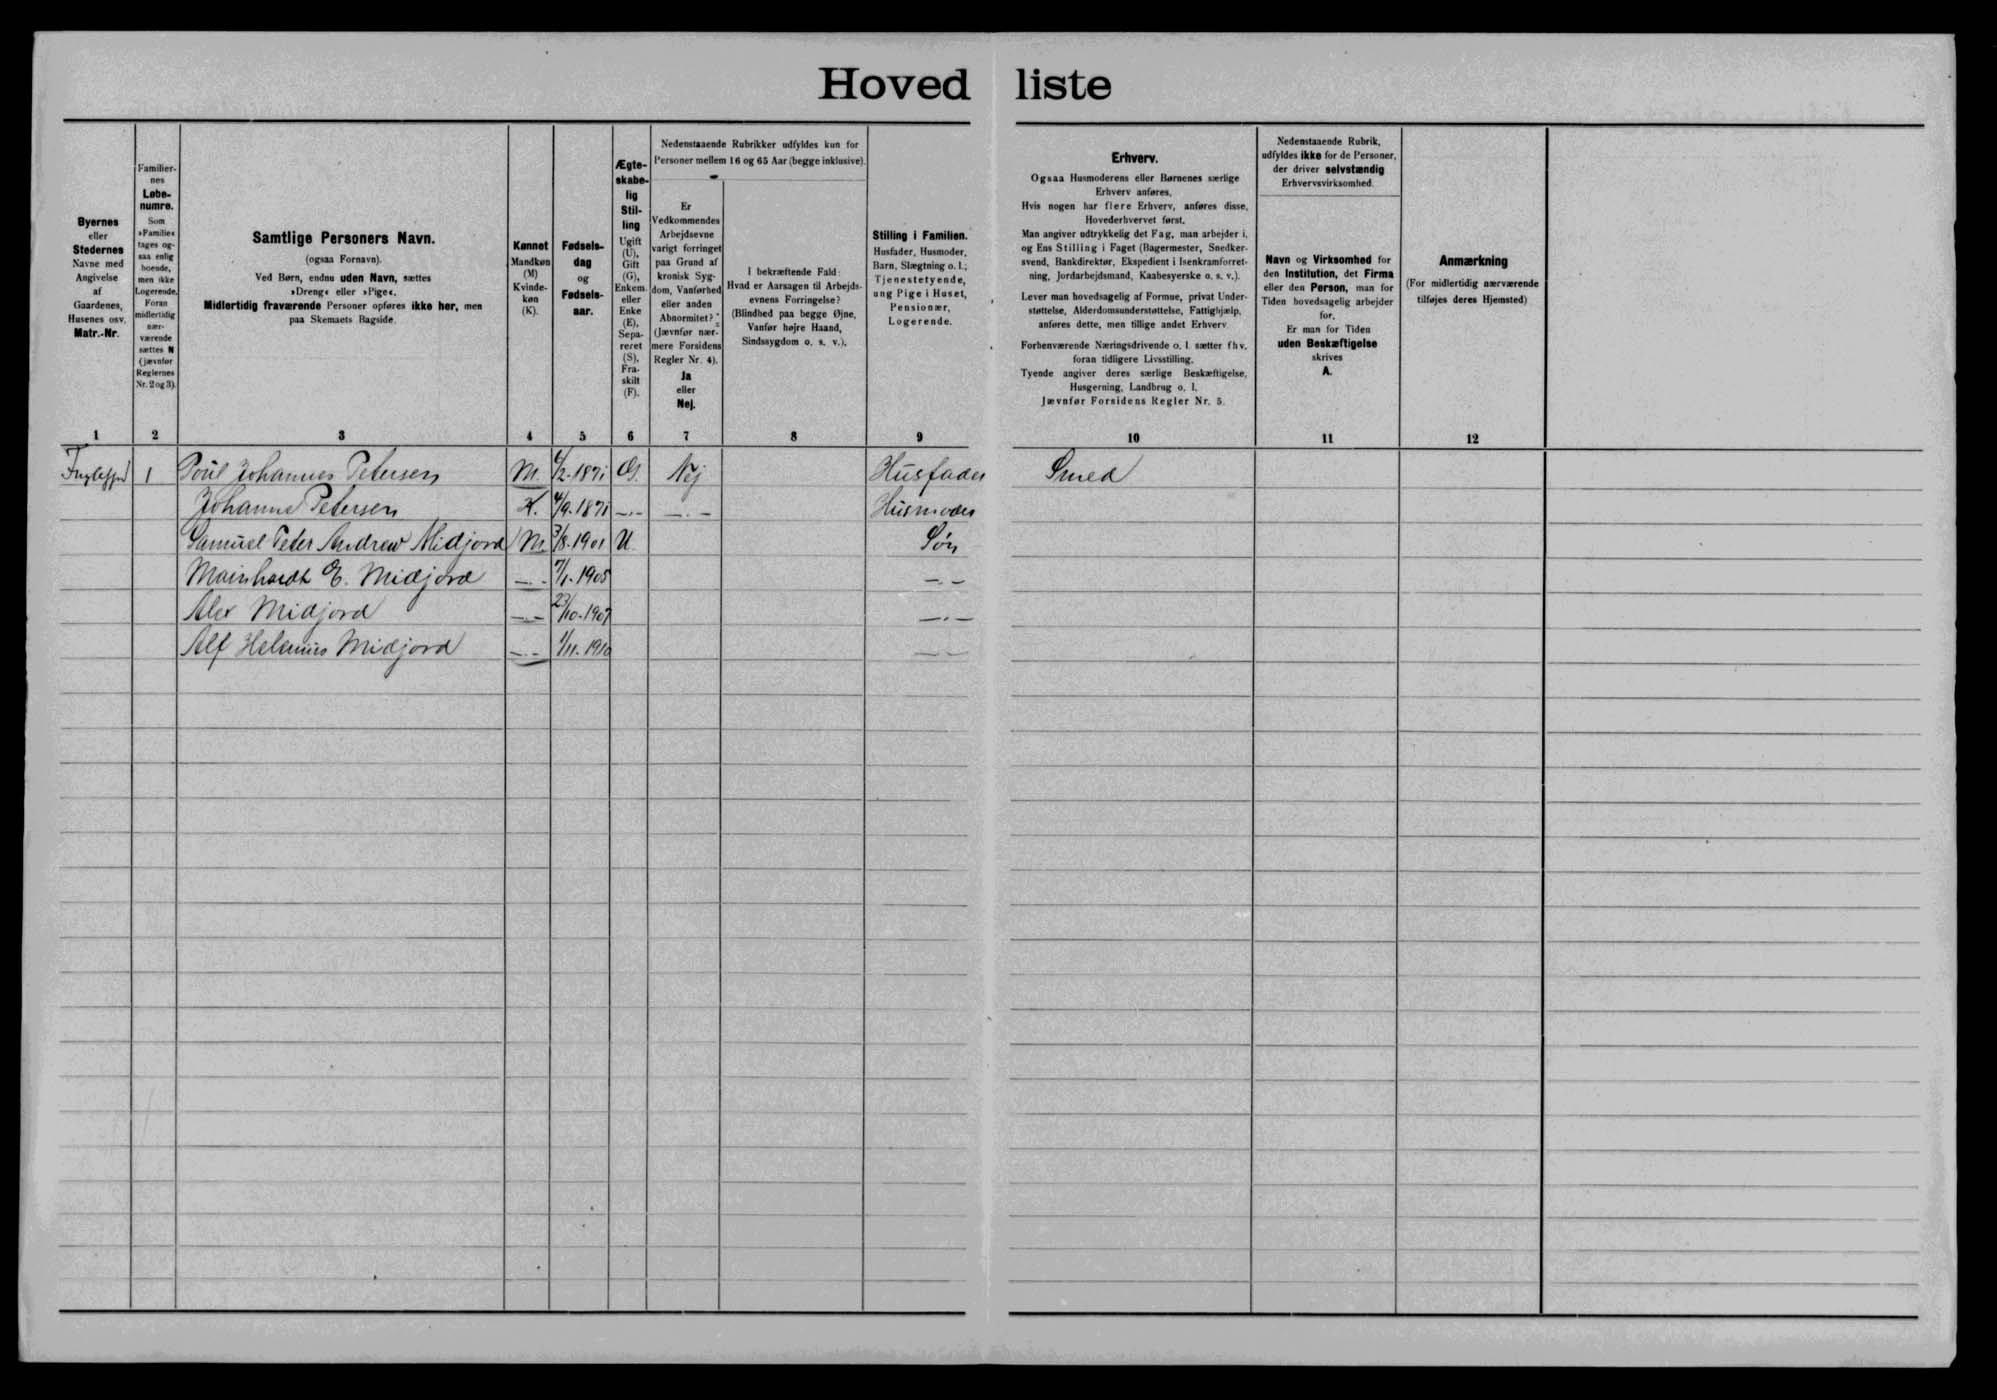 Hovedliste
Byernes
eller
Stedernes
Navne med
Angivelse
af
Gaardenes,
Husenes osv.
Matr.-Nr.
Familier-
nes
Løbe-
numre.
Som
»Familie«
tages og-
saa enlig
boende,
men ikke
Logerende.
Foran
midlertidig
nær-
værende
sættes N
(jævnfør
Reglernes
Nr. 2 og 3).
Samtlige Personers Navn.
(ogsaa Fornavn).
Ved Børn, endnu uden Navn, sættes
»Dreng« eller »Pige«.
Midlertidig fraværende Personer opføres ikke her, men
paa Skemaets Bagside.
Kønnet
Mandkøn
(M)
Kvinde-
køn
(K).
Fødsels-
dag
og
Fødsels-
aar.
Ægte-
skabe-
lig
Stil-
ling
Ugift
(U),
Gift
(G),
Enkem.
eller
Enke
(E),
Sepa-
reret
(S),
Fra-
skilt
(F).
Nedenstaaende Rubrikker udfyldes kun for
Personer mellem 16 og 65 Aar (begge inklusive).
Er
Vedkommendes
Arbejdsevne
varigt forringet
paa Grund af
kronisk Syg-
dom, Vanførhed
eller anden
Abnormitet?
(Jævnfør nær-
mere Forsidens
Regler Nr. 4).
Ja
eller
Nej.
I bekræftende Fald:
Hvad er Aarsagen til Arbejds-
evnens Forringelse?
(Blindhed paa begge Øjne,
Vanfør højre Haand,
Sindssygdom o. s. v.).
Stilling i Familien.
Husfader, Husmoder,
Barn, Slægtning o. l.;
Tjenestetyende,
ung Pige i Huset,
Pensionær,
Logerende.
Erhverv.
Ogsaa Husmoderens eller Børnenes særlige
Erhverv anføres.
Hvis nogen har flere Erhverv, anføres disse,
Hovederhvervet først.
Man angiver udtrykkelig det Fag, man arbejder i,
og Ens Stilling i Faget (Bagermester, Snedker-
svend, Bankdirektør, Ekspedient i Isenkramforret-
ning, Jordarbejdsmand, Kaabesyerske o. s. v.).
Lever man hovedsagelig af Formue, privat Under-
støttelse, Alderdomsunderstøttelse, Fattighjælp,
anføres dette, men tillige andet Erhverv
Forhenværende Næringsdrivende o. l. sætter fhv.
foran tidligere Livsstilling.
Tyende angiver deres særlige Beskæftigelse,
Husgerning, Landbrug o. l.
Jævnfør Forsidens Regler Nr. 5.
Nedenstaaende Rubrik,
udfyldes ikke for de Personer,
der driver selvstændig
Erhvervsvirksomhed.
Navn og Virksomhed for
den Institution, det Firma
eller den Person, man for
Tiden hovedsagelig arbejder
for.
Er man for Tiden
uden Beskæftigelse
skrives
A.
Anmærkning
(For midlertidig nærværende
tilføjes deres Hjemsted)
1 2 3 4 5 6 7 8 9 10 11 12
1 Poul Johannes Petersen M. 4/2-1871 G. Nej Husfader Smed
Johanne Petersen K. 4/9-1871 -.- -.- Husmoder
Samuel Peter Andrew Midjord M. 3/8-1901 U. Søn
Mainhardt E. Midjord -.- 7/1-1905 -.-
Alex Midjord -.- 23/10-1907 -.-
Alf Helenius Midjord -.- 1/11-1910 -.-